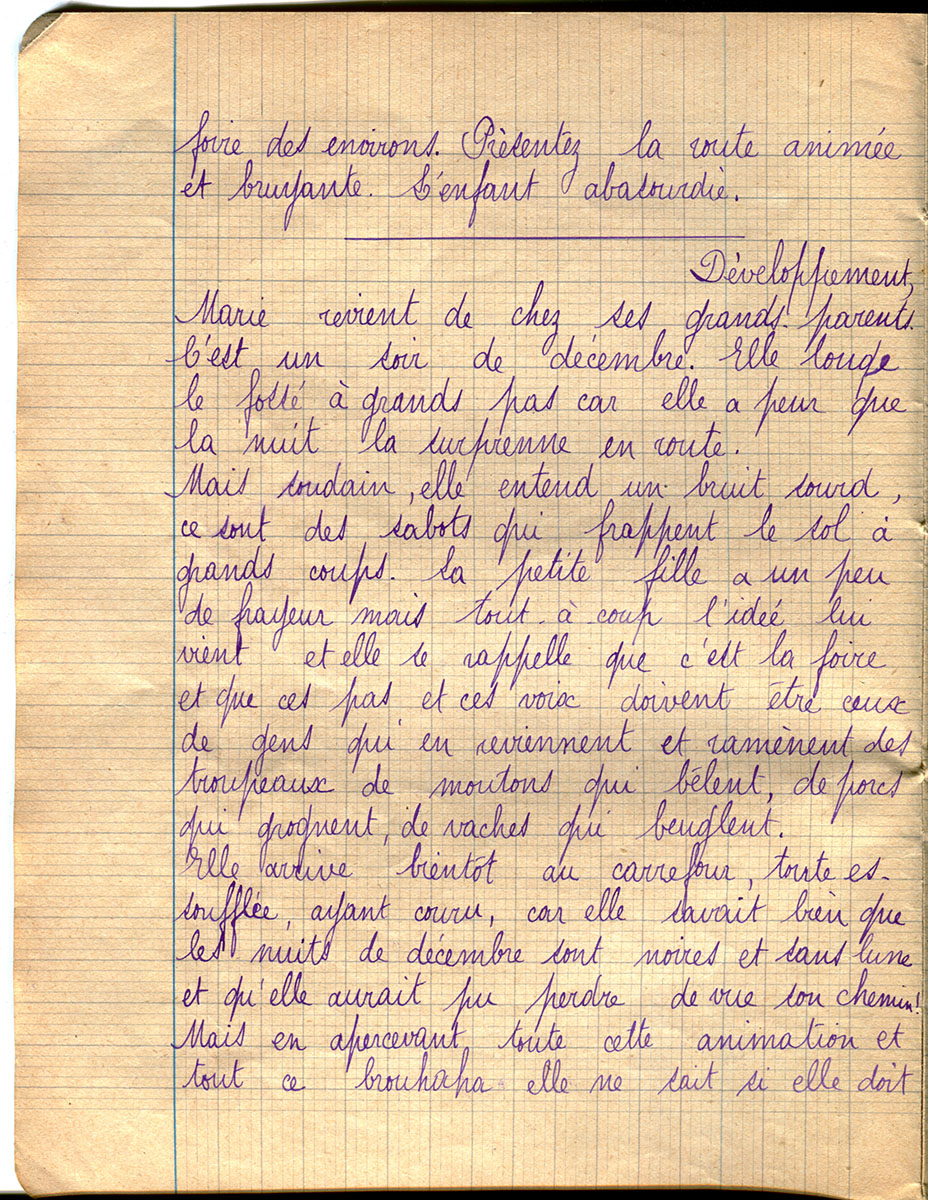 foire des environs. Présentez la route animée
et bruyante. L'enfant abasourdie.
Développement,
Marie revient de chez ses grands-parents.
C'est un soir de décembre. Elle longe
le fossé à grands pas car elle a peur que
la nuit la surprenne en route.
Mais soudain, elle entend un bruit sourd,
ce sont des sabots qui frappent le sol à
grands coups. La petite fille a un peu
de frayeur mais tout-à-coup l'ideé lui
vient et elle se rappelle que c'est la foire
et que ces pas et ces voix doivent être ceux
de gens qui en reviennent et ramènent des
troupeaux de moutons qui bêlent, de porcs
qui grognent, de vaches qui beuglent.
Elle arrive bientôt au carrefour, toute es-
soufflée, ayant couru, car elle savait bien que
les nuits de décembre sont noires et sans lune
et qu'elle aurait pu perdre de vue son chemin!
Mais en apercevant toute cette animation et
tout ce brouhaha elle ne sait si elle doit